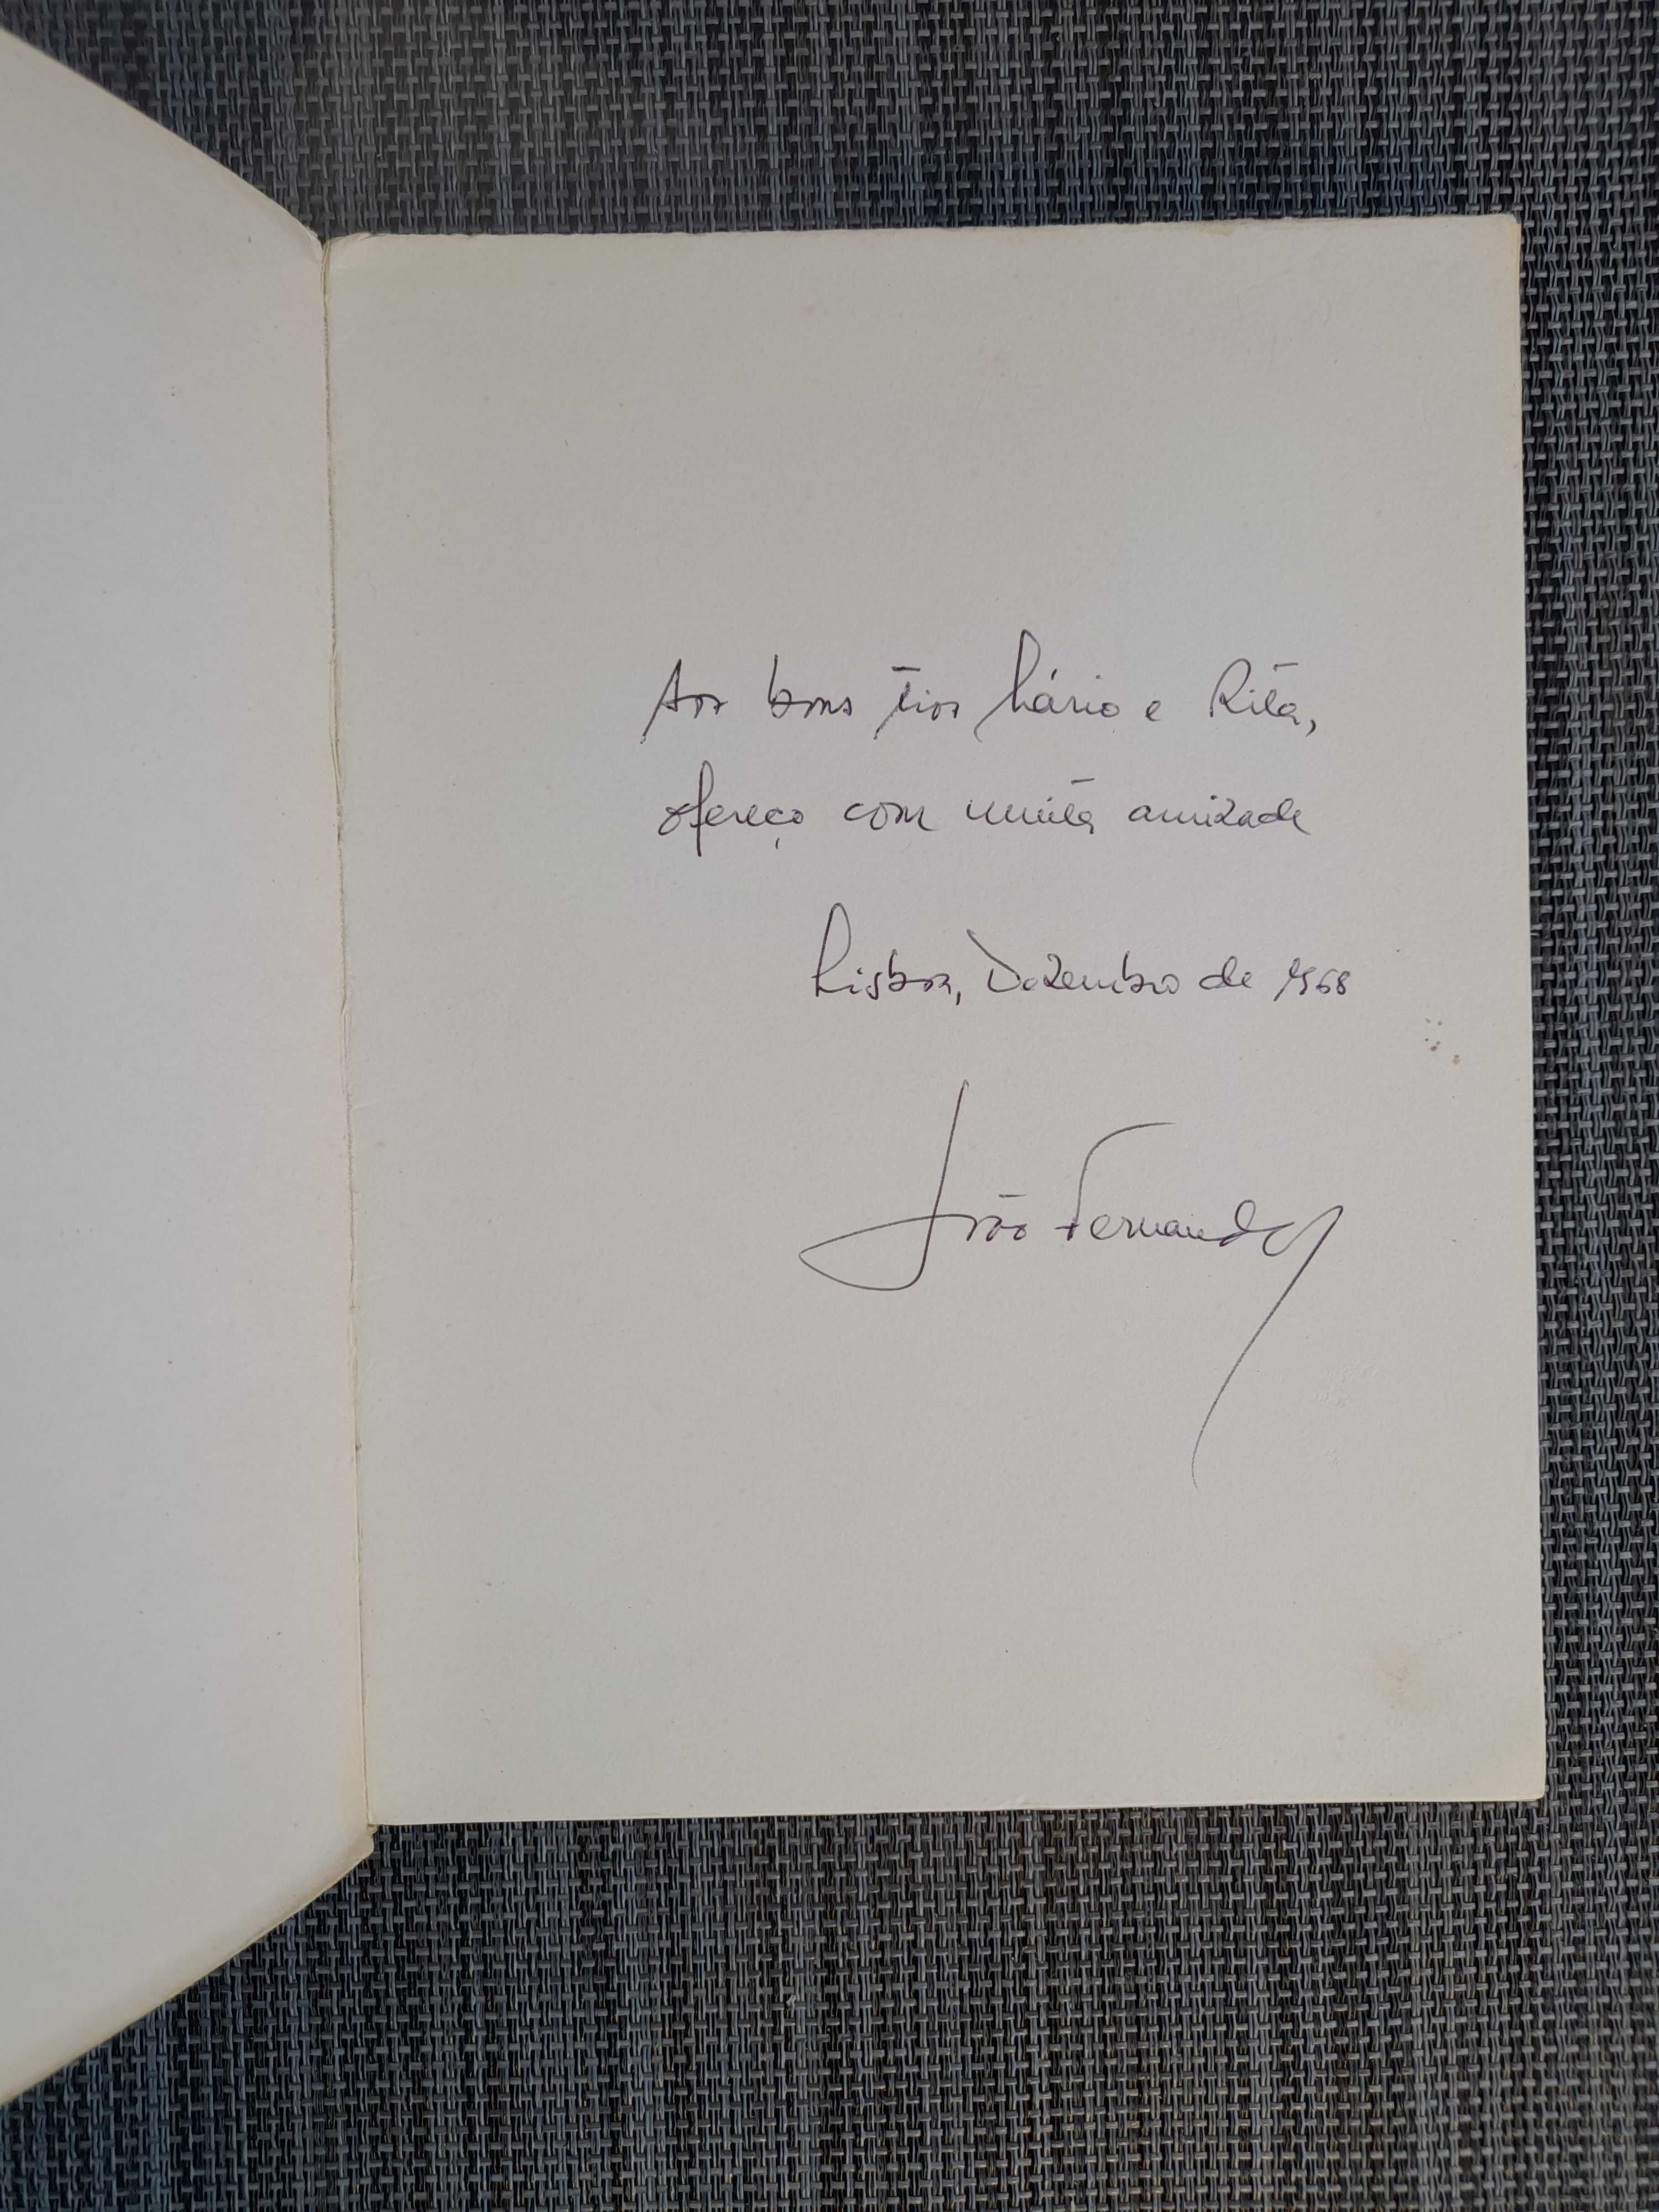 Aos bons tios Mário e Rita,
ofereço com muita amizade
Lisboa, Dezembro de 1968
João Fernandes